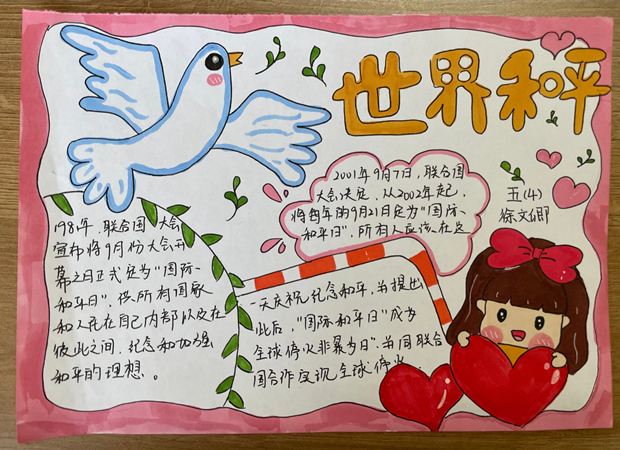 世界和平
五(4)
徐文卿
1981年，联合国大会
宣布将9月份大会开
幕之日正式定为“国际
和平日”，供所有国家
和人民在自己内部以及在
彼此之间，纪念和加强
和平的理想。
2001年9月7日，联合国
大会决定，从2002年起，
将每年的9月21日定为“国际
和平日”，所有人应该在这
一天庆祝纪念和平，并提出
此后，“国际和平日”成为
全球停火非暴力日”并同联合
国合作实现全球停火